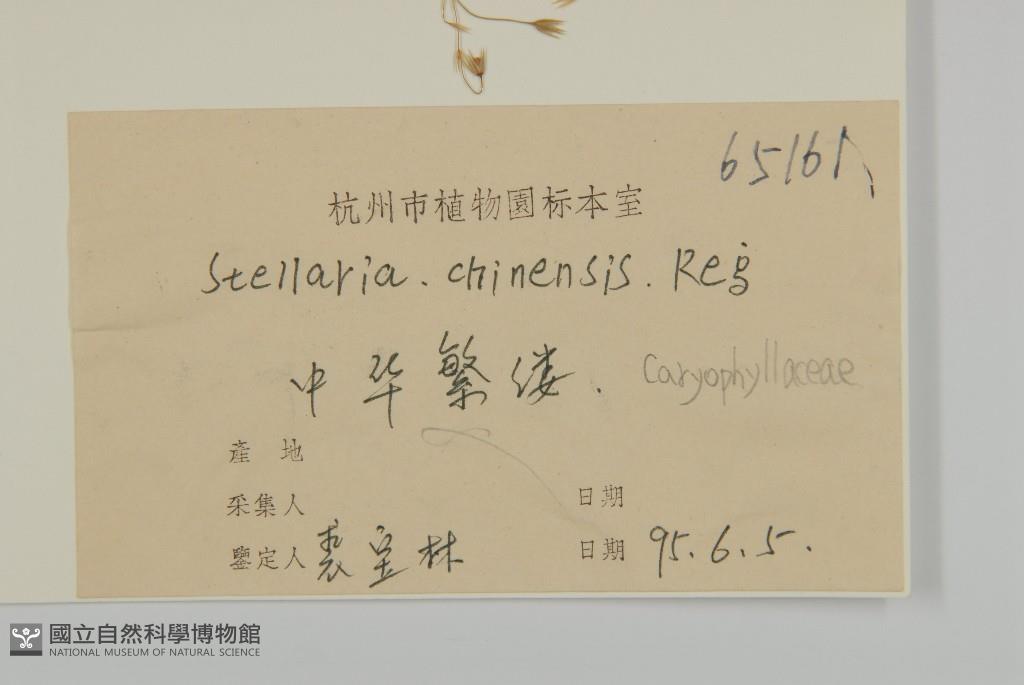 65161
杭州市植物園标本室
Stellaria. chinensis. Reg
中华繁缕.
Caryophyllaceae
產 地
采集人 日期
鑒定人 裘宝林 日期 95.6.5.
國立自然科學博物館
NATIONAL MUSEUM OF NATURAL SCIENCE